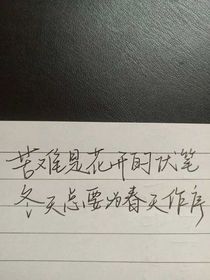 苦难是花开的伏笔
冬天总要为春天作序